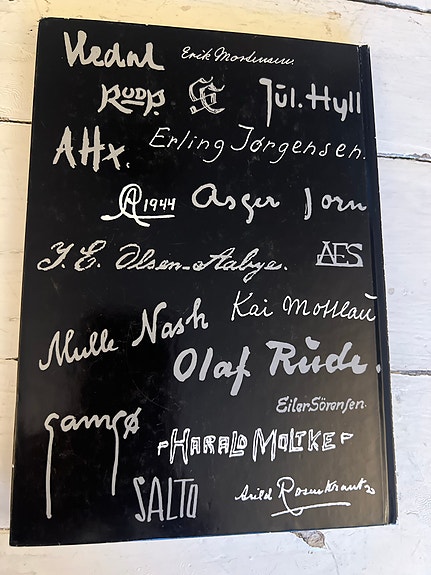 Erik Mortensen.
RUDP.
Jül. Hyll
AHx.
Erling Jørgensen.
1944
Asger Jorn
J. E. Olsen-Aabye.
AES
Kai Mottlau
Mulle Nash
Olaf Rude.
Eiler Sörensen.
HARALD MOLTKE
SALTO
Arild Rosenkrantz